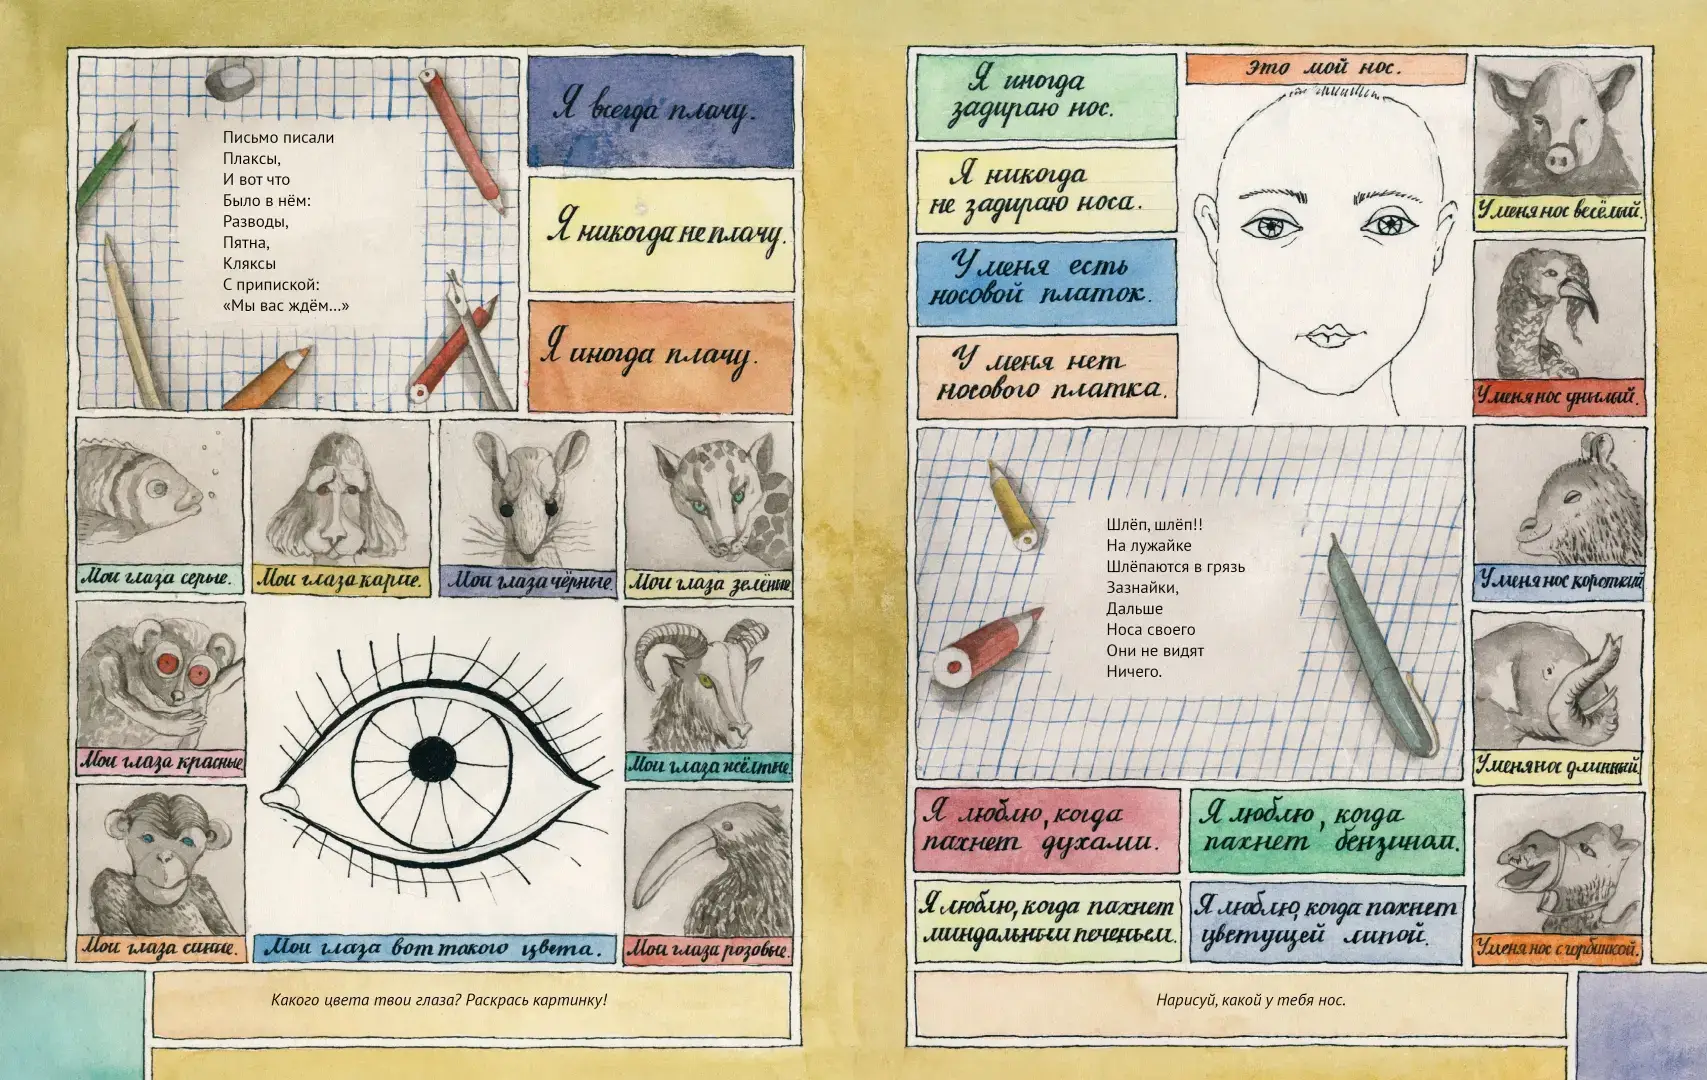 Письмо писали
Плаксы,
И вот что
Было в нём:
Разводы,
Пятна,
Кляксы
С припиской:
«Мы вас ждём...»
Я всегда плачу.
Я никогда не плачу.
Я иногда плачу.
Мои глаза серые.
Мои глаза карие.
Мои глаза чёрные.
Мои глаза зелёные.
Мои глаза красные.
Мои глаза жёлтые.
Мои глаза синие.
Мои глаза вот такого цвета.
Мои глаза розовые.
Какого цвета твои глаза? Раскрась картинку!
Я иногда
задираю нос.
Я никогда
не задираю носа.
У меня есть
носовой платок.
У меня нет
носового платка.
Это мой нос.
У меня нос весёлый.
У меня нос унылый.
У меня нос короткий.
У меня нос длинный.
У меня нос с горбинкой.
Шлёп, шлёп!!
На лужайке
Шлёпаются в грязь
Зазнайки,
Дальше
Носа своего
Они не видят
Ничего.
Я люблю, когда
пахнет духами.
Я люблю, когда
пахнет бензином.
Я люблю, когда пахнет
миндальным печеньем.
Я люблю, когда пахнет
цветущей липой.
Нарисуй, какой у тебя нос.